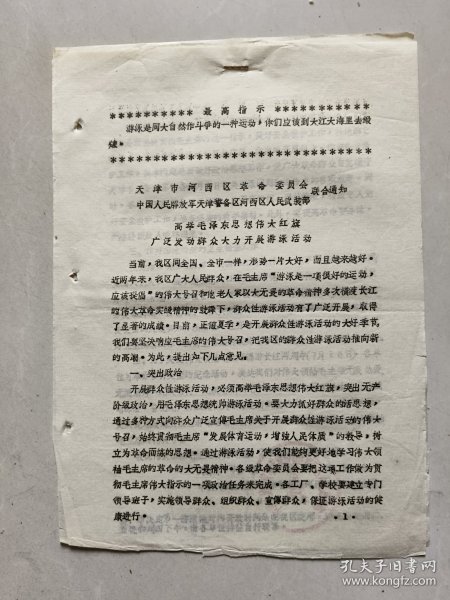 ********** 最高指示 **********
游泳是同大自然作斗争的一种运动，你们应该到大江大海里去锻
炼。
天津市河西区革命委员会
中国人民解放军天津警备区河西区人民武装部
联合通知
高举毛泽东思想伟大红旗
广泛发动群众大力开展游泳活动
当前，我区同全国、全市一样，形势一片大好，而且越来越好。
近两年来，我区广大人民群众，在毛主席“游泳是一项很好的运动，
应该提倡”的伟大号召和他老人家以大无畏的革命精神多次横渡长江
的伟大革命实践精神的鼓舞下，群众性游泳活动有了广泛开展，取得
了显著的成绩。目前，正值夏季，是开展群众性游泳活动的大好季节，
我们要坚决响应毛主席的伟大号召，把我区的群众性游泳活动推向新
的高潮。为此，提出如下几点意见。
一、突出政治
开展群众性游泳活动，必须高举毛泽东思想伟大红旗，突出无产
阶级政治，用毛泽东思想统帅游泳活动。要大力抓好群众的活思想，
通过多种方式向群众广泛宣传毛主席关于开展群众性游泳活动的伟大
号召，始终贯彻毛主席“发展体育运动，增强人民体质”的教导，树
立为革命而练的思想。通过游泳活动，使我们能够更好地学习伟大领
袖毛主席的革命的大无畏精神。各级革命委员会要把这项工作做为贯
彻毛主席伟大指示的一项政治任务来完成。各工厂、学校要建立专门
领导班子，实施领导群众、组织群众、宣传群众，保证游泳活动的健
康进行。
·1·
孔夫子旧书网
www.kongfz.com